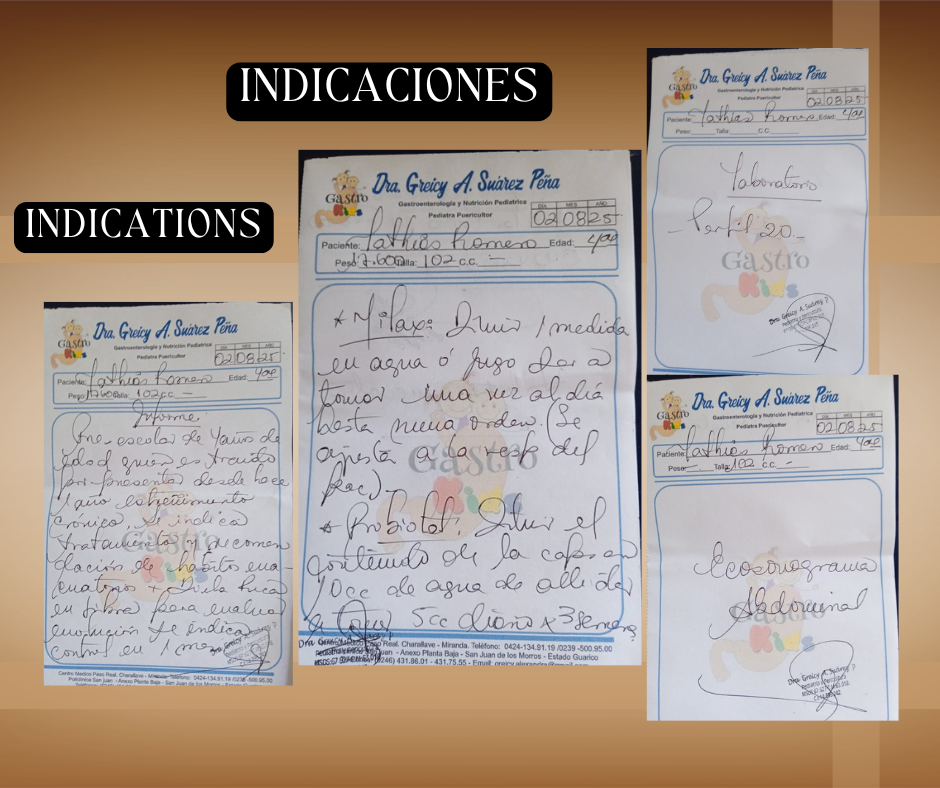 INDICACIONES
INDICATIONS
Gastro Kids
Dra. Greicy A. Suárez Peña
Gastroenterología y Nutrición Pediatrica
Pediatra Puericultor
DIA MES AÑO
02 08 25
Paciente: Mathias Romero Edad: 4
Peso: 17.600 Talla: 102 c.c. -
Informe
Pre-escolar de 4 años de
edad quien es traido
por presentar desde hace
1 año estreñimiento
crónico, se indica
tratamiento y recomen
dación de habito eva-
cuatorio + Dieta rica
en fibra para evaluar
evolución se indica
control en 1 mes
Centro Medico Paso Real. Charallave - Miranda. Teléfono: 0424-134.91.19 /0239 -500.95.00
- Anexo Planta Baja - San Juan de los Morros - Estado Guarico
Gastro Kids
Dra. Greicy A. Suárez Peña
Gastroenterología y Nutrición Pediatrica
Pediatra Puericultor
DIA MES AÑO
02 08 25
Paciente: Mathias Romero Edad: 4
Peso: 17.600 Talla: 102 c.c. -
* Milax: Diluir 1 medida
en agua ó jugo dar a
tomar una vez al día
hasta nueva orden. (Se
ajusta a la resp del
pac).
* Probiotal: Diluir el
contenido de la caps en
10cc de agua de allí dar
a tomar 5cc diario x 3 semanas
Real. Charallave - Miranda. Teléfono: 0424-134.91.19 /0239 -500.95.00
Juan - Anexo Planta Baja - San Juan de los Morros - Estado Guarico
(0246) 431.86.01 - 431.75.55 - Email:
Gastro Kids
Dra. Greicy A. Suárez Peña
Gastroenterología y Nutrición Pediatrica
Pediatra Puericultor
DIA MES AÑO
02 08 25
Paciente: Mathias Romero Edad: 4
Peso: Talla: c.c.
Laboratorio
- Perfil 20.-
Gastro Kids
Dra. Greicy A. Suárez P
Gastro Kids
Dra. Greicy A. Suárez Peña
Gastroenterología y Nutrición Pediatrica
Pediatra Puericultor
DIA MES AÑO
02 08 25
Paciente: Mathias Romero Edad: 4
Peso: - Talla: 102 c.c. -
Ecosonograma
Abdominal
Dra. Greicy A. Suárez P